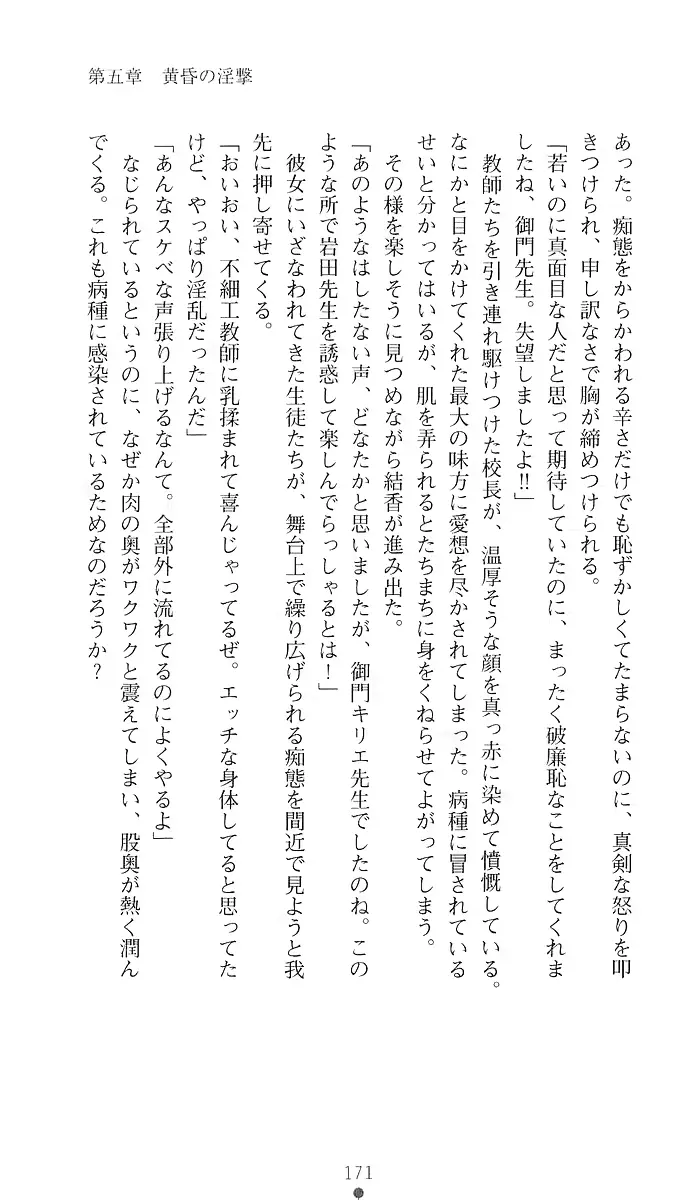 第五章　黄昏の淫撃
あった。痴態をからかわれる辛さだけでも恥ずかしくてたまらないのに、真剣な怒りを叩
きつけられ、申し訳なさで胸が締めつけられる。
「若いのに真面目な人だと思って期待していたのに、まったく破廉恥なことをしてくれま
したね、御門先生。失望しましたよ!!」
教師たちを引き連れ駆けつけた校長が、温厚そうな顔を真っ赤に染めて憤慨している。
なにかと目をかけてくれた最大の味方に愛想を尽かされてしまった。病種に冒されている
せいと分かってはいるが、肌を弄られるとたちまちに身をくねらせてよがってしまう。
その様を楽しそうに見つめながら結香が進み出た。
「あのようなはしたない声、どなたかと思いましたが、御門キリエ先生でしたのね。この
ような所で岩田先生を誘惑して楽しんでらっしゃるとは！」
彼女にいざなわれてきた生徒たちが、舞台上で繰り広げられる痴態を間近で見ようと我
先に押し寄せてくる。
「おいおい、不細工教師に乳揉まれて喜んじゃってるぜ。エッチな身体してると思ってた
けど、やっぱり淫乱だったんだ」
「あんなスケベな声張り上げるなんて。全部外に流れてるのによくやるよ」
なじられているというのに、なぜか肉の奥がワクワクと震えてしまい、股奥が熱く潤ん
でくる。これも病種に感染されているためなのだろうか？
171